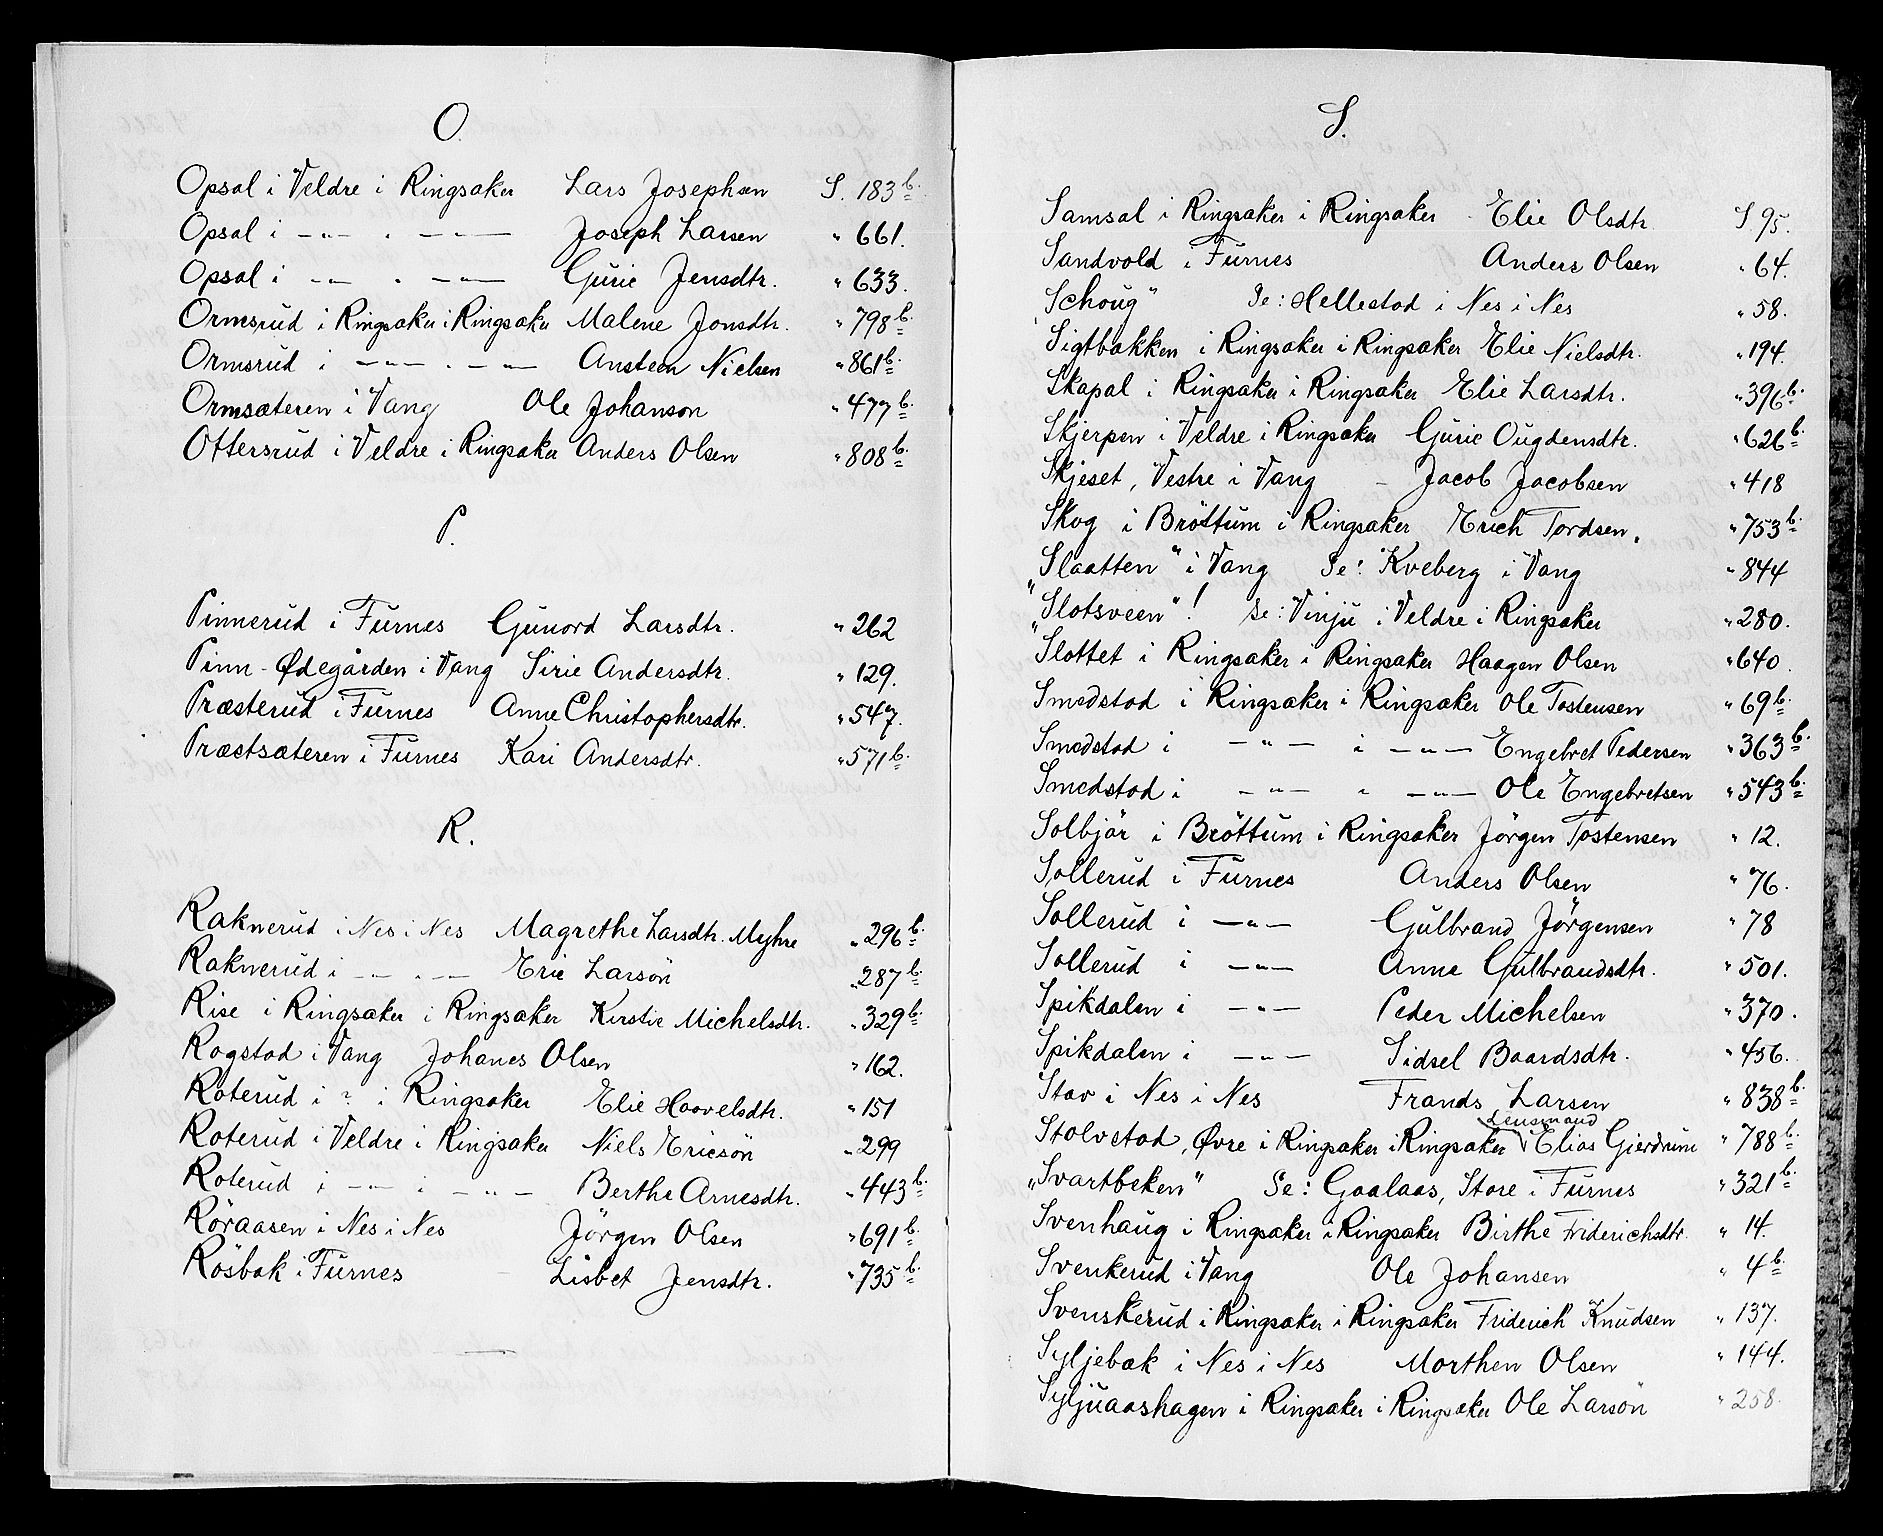 O.
Opsal i Veldre i Ringsaker Lars Josephsen S. 183 b.
Opsal i — " — . — " — Joseph Larsen " 661.
Opsal i — " — . — " — Gurie Jensdtr. " 633.
Ormsrud i Ringsaker i Ringsaker Malene Jonsdtr. " 798 b.
Ormsrud i — " — . — " — Ansteen Nielsen " 861 b.
Ormsæteren i Vang Ole Johanson " 477 b.
Ottersrud i Veldre i Ringsaker Anders Olsen " 808 b.
P.
Pinnerud i Furnes Gunord Larsdtr. " 262
Pinn-Ødegården i Vang Sirie Andersdtr. " 129.
Præsterud i Furnes Anne Christophersdtr. " 547.
Præstsæteren i Furnes Kari Andersdtr. " 571 b.
R.
Raknerud i Nes i Nes Magrethe Larsdtr. Myhre " 296 b.
Raknerud i — " — . — " — Eric Larsön " 287 b.
Rise i Ringsaker i Ringsaker Kirstie Michelsdtr. " 329 b.
Rogstad i Vang Johanes Olsen " 162.
Roterud i ? i Ringsaker Elie Haavelsdtr. " 151
Roterud i Veldre i Ringsaker Niels Ericsön " 299
Roterud i — " — i — " — Berthe Arnesdtr. " 443 b.
Röraasen i Nes i Nes Jörgen Olsen " 691 b.
Rösbak i Furnes Lisbet Jensdtr. " 735 b.
S.
Samsal i Ringsaker i Ringsaker Elie Olsdtr. S. 95.
Sandvold i Furnes Anders Olsen " 64.
"Schoug" Se: Hellestad i Nes i Nes " 58.
Sigtbakken i Ringsaker i Ringsaker Elie Nielsdtr. " 194.
Skapal i Ringsaker i Ringsaker Elie Larsdtr. " 396 b.
Skjerpen i Veldre i Ringsaker Gurie Ougdensdtr. " 626 b.
Skjeset, Vestre i Vang - Jacob Jacobsen " 418
Skog i Bröttum i Ringsaker Erich Tordsen. " 753 b.
"Slaatten" i Vang Se: Kveberg i Vang " 844
"Slotsveen"! Se: Vinju i Veldre i Ringsaker " 280.
Slottet i Ringsaker i Ringsaker Haagen Olsen " 640.
Smedstad i Ringsaker i Ringsaker Ole Tostensen " 69 b.
Smedstad i — " — i — " — Engebret Pedersen " 363 b.
Smedstad i — " — " — " — Ole Engebretsen " 543 b.
Solbjör i Bröttum i Ringsaker Jörgen Tostensen " 12.
Sollerud i Furnes Anders Olsen " 76.
Sollerud i — " — Gulbrand Jörgensen " 78
Sollerud i — " — Anne Gulbrandsdtr. " 501.
Spikdalen i — " — Peder Michelsen " 370.
Spikdalen i — " — Sidsel Baardsdtr. " 456.
Stav i Nes i Nes Frands Larsen " 838 b.
Stolvstad, Øvre i Ringsaker i Ringsaker Lensmand Elias Gierdrum " 788 b.
"Svartbeken" Se: Gaalaas, Store i Furnes " 321 b.
Svenhaug i Ringsaker i Ringsaker Birthe Friderichsdtr. " 14.
Svenkerud i Vang Ole Johansen " 4 b.
Svenskerud i Ringsaker i Ringsaker Friderich Knudsen " 137.
Syljebæk i Nes i Nes Morthen Olsen " 144.
Syljuaashagen i Ringsaker i Ringsaker Ole Larsön " 258.